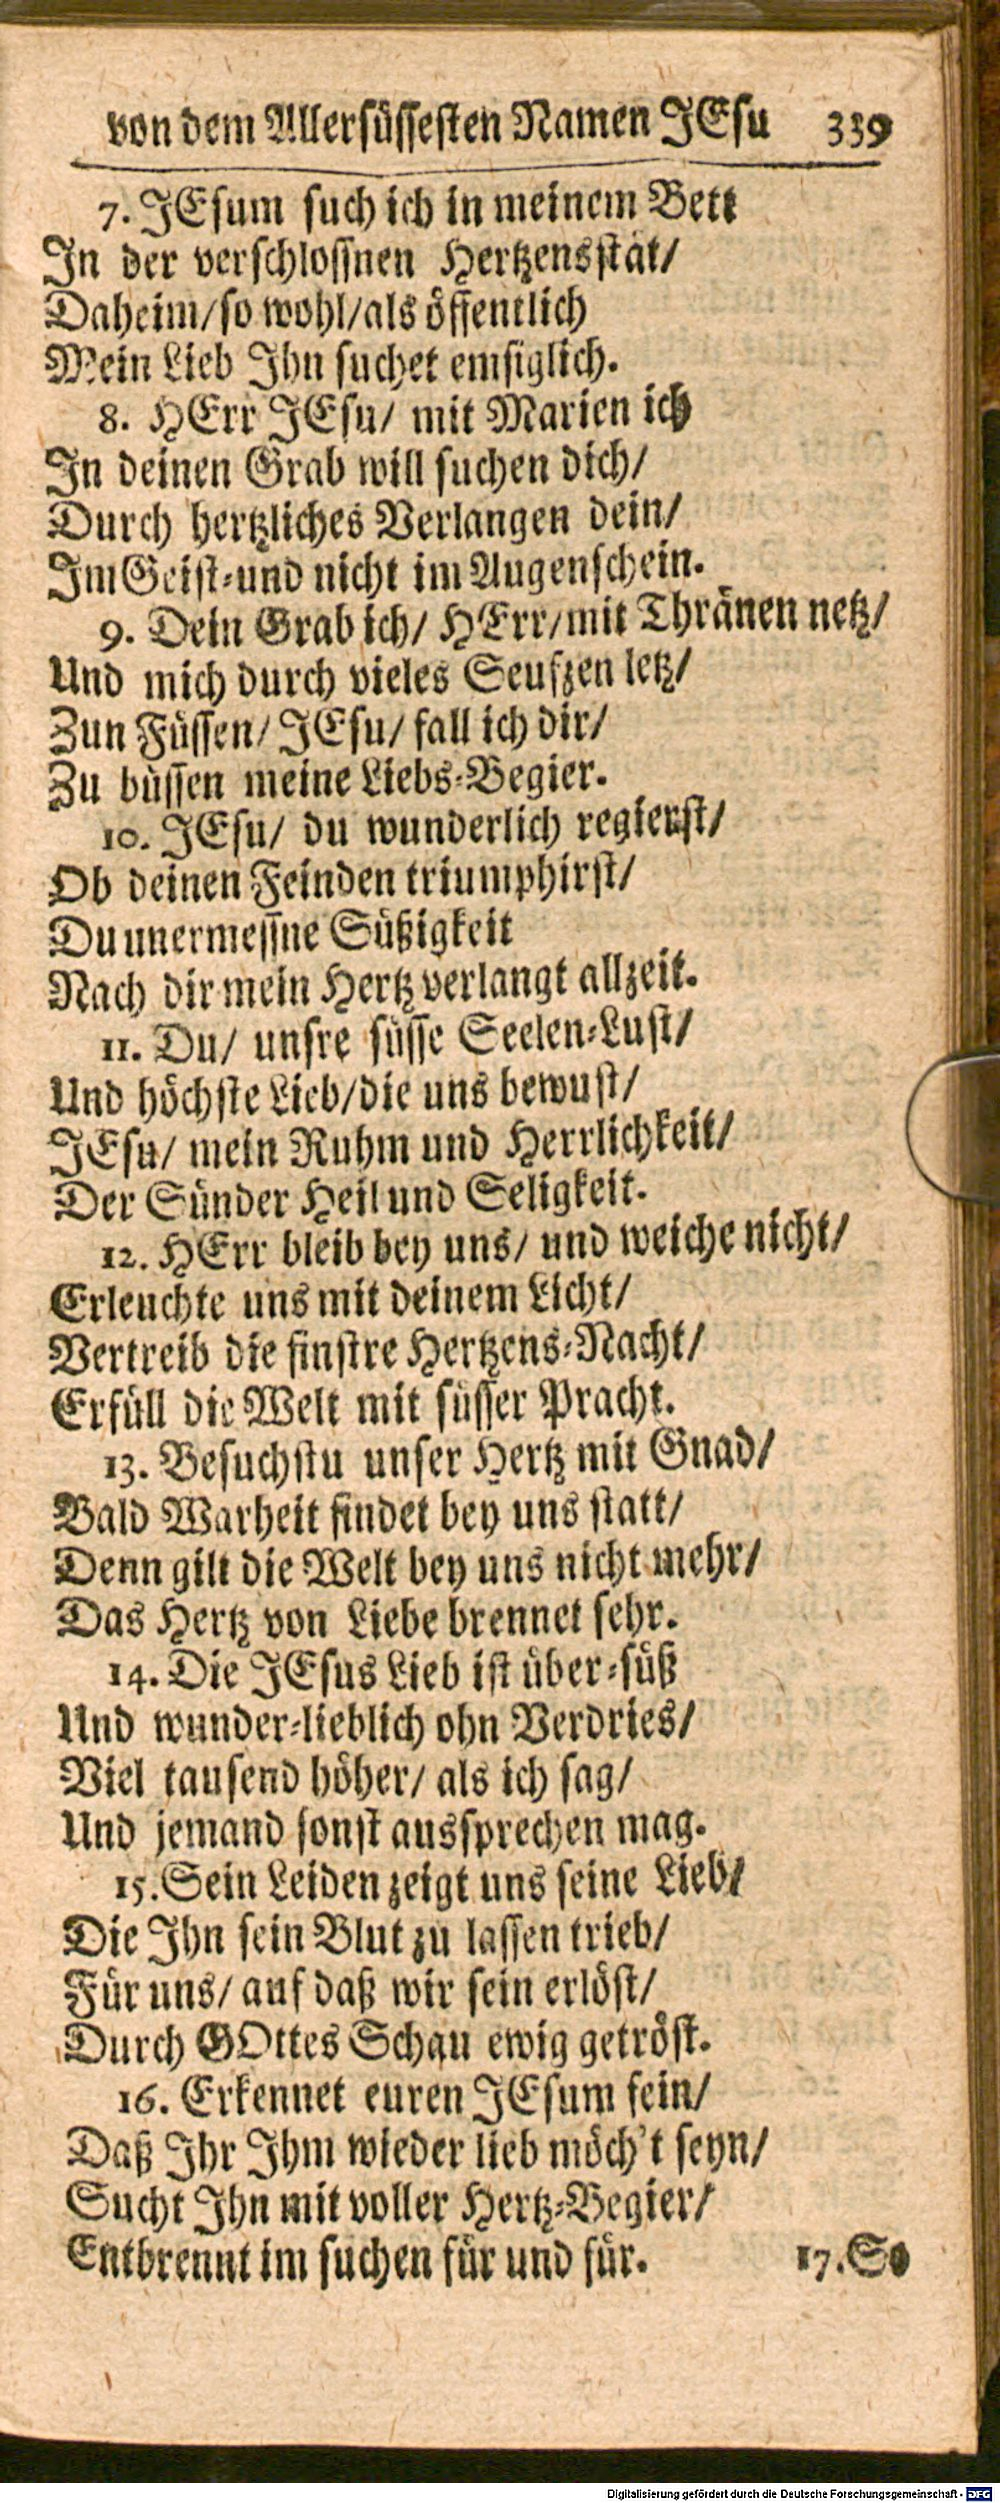 von dem Allersüssesten Namen JEsu 339
7. JEsum such ich in meinem Bett
In der verschlossnen Hertzensstät/
Daheim/so wohl/als öffentlich
Mein Lieb Ihn suchet emsiglich.
8. HErr JEsu/ mit Marien ich
In deinen Grab will suchen dich/
Durch hertzliches Verlangen dein/
Im Geist-und nicht im Augenschein.
9. Dein Grab ich/ HErr/mit Thränen netz/
Und mich durch vieles Seufzen letz/
Zun Füssen/ JEsu/ fall ich dir/
Zu büssen meine Liebs-Begier.
10. JEsu/ du wunderlich regierst/
Ob deinen Feinden triumphirst/
Du unermessne Süßigkeit
Nach dir mein Hertz verlangt allzeit.
11. Du/ unsre süsse Seelen-Lust/
Und höchste Lieb/die uns bewust/
JEsu/ mein Ruhm und Herrlichkeit/
Der Sünder Heil und Seligkeit.
12. HErr bleib bey uns/ und weiche nicht/
Erleuchte uns mit deinem Licht/
Vertreib die finstre Hertzens-Nacht/
Erfüll die Welt mit süsser Pracht.
13. Besuchstu unser Hertz mit Gnad/
Bald Warheit findet bey uns statt/
Denn gilt die Welt bey uns nicht mehr/
Das Hertz von Liebe brennet sehr.
14. Die JEsus Lieb ist über-süß
Und wunder-lieblich ohn Verdries/
Viel tausend höher/ als ich sag/
Und jemand sonst aussprechen mag.
15. Sein Leiden zeigt uns seine Lieb/
Die Ihn sein Blut zu lassen trieb/
Für uns/ auf daß wir sein erlöst/
Durch GOttes Schau ewig getröst.
16. Erkennet euren JEsum fein/
Daß Ihr Ihm wieder lieb möch't seyn/
Sucht Ihn mit voller Hertz-Begier/
Entbrennt im suchen für und für. 17. So
Digitalisierung gefördert durch die Deutsche Forschungsgemeinschaft - DFG